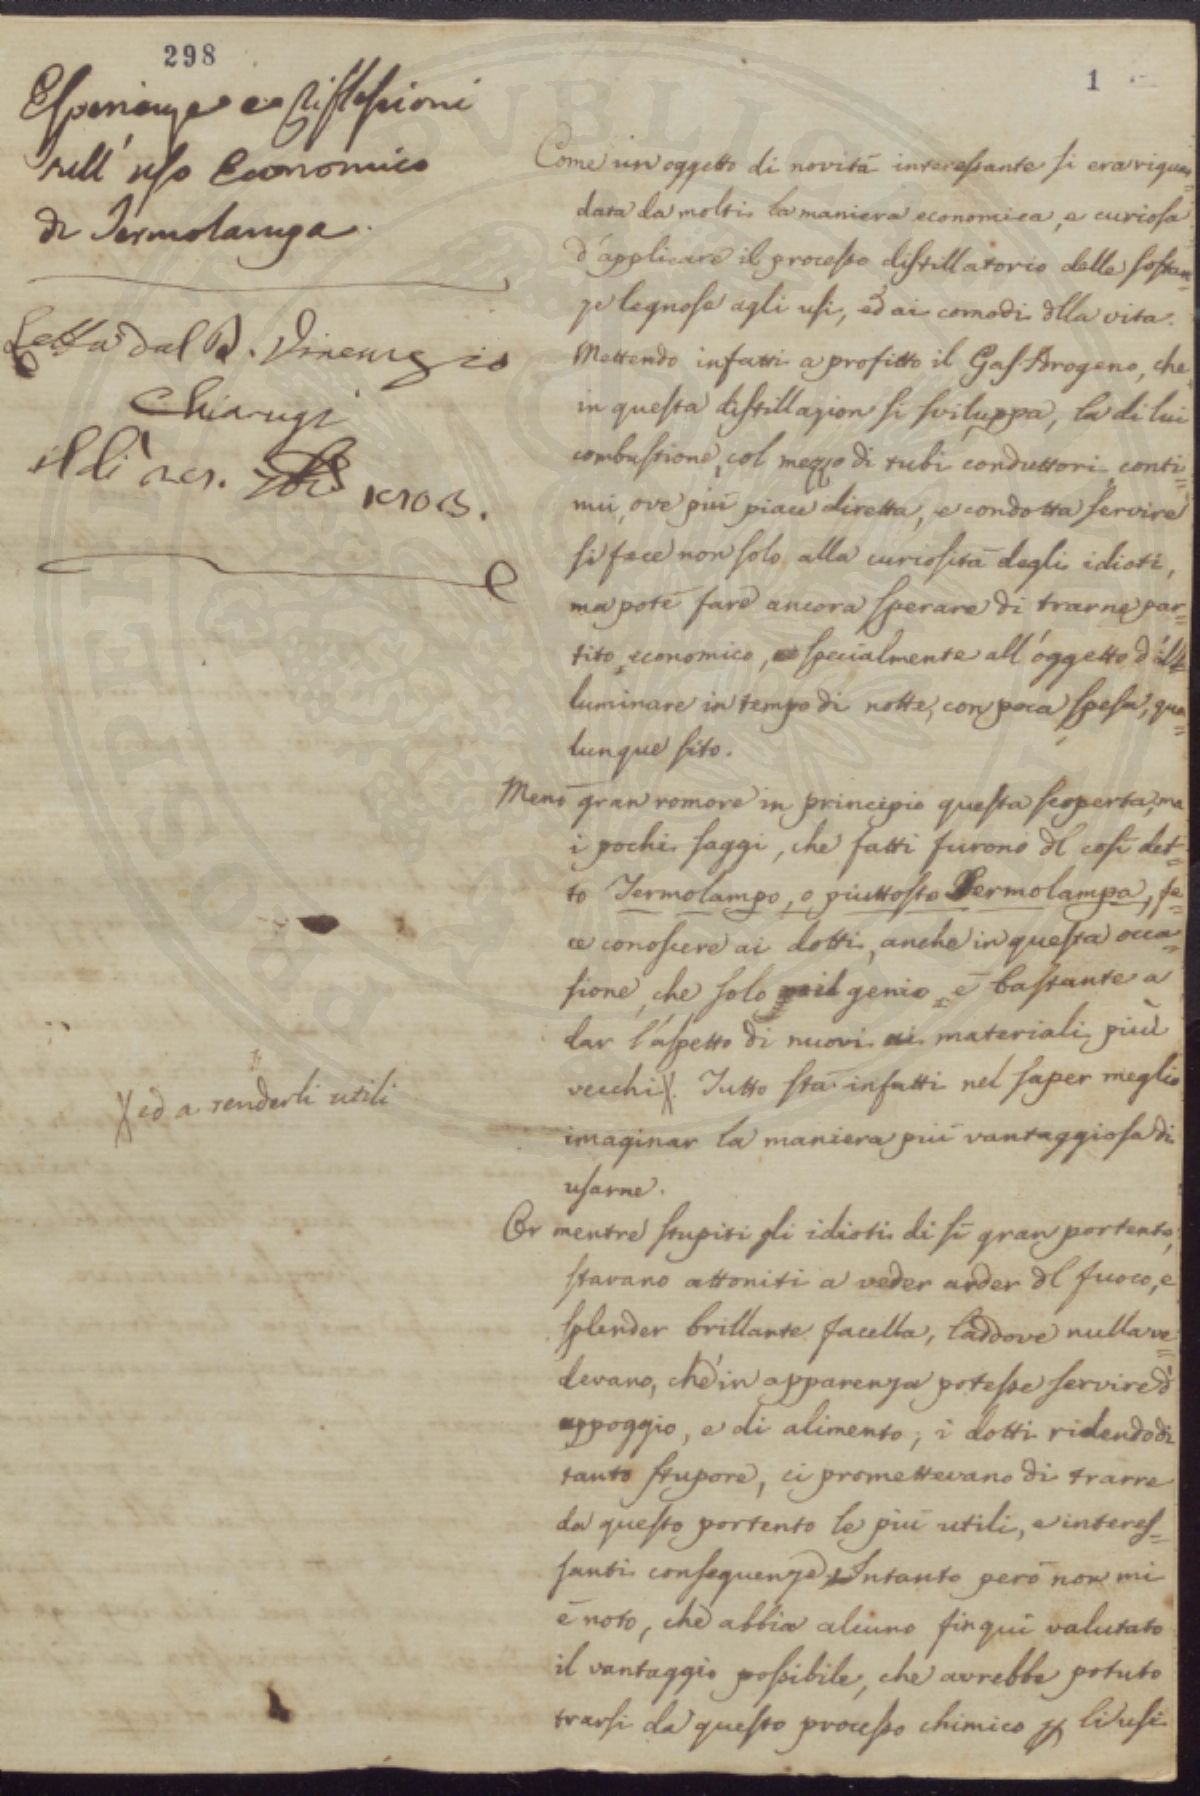 298
1
Esperienze e Riflessioni
sull'uso Economico
di Termolampa.
Letta dal D. Vincenzio
Chiarugi
il dì
Come un oggetto di novità interessante si era riguar=
data da molti la maniera economica, e curiosa
d'applicare il processo distillatorio delle sostan=
ze legnose agli usi, ed ai comodi dlla vita.
Mettendo infatti a profitto il Gas Idrogeno, che
in questa distillazion si sviluppa, la di lui
combustione, col mezzo di tubi conduttori conti=
nui, ove più piace diretta, e condotta servire
si fece non solo alla curiosità degli idioti,
ma potè fare ancora sperare di trarne par=
tito economico, specialmente all'oggetto d'il=
luminare in tempo di notte, con poca spesa, qua=
lunque sito.
Menò gran romore in principio questa scoperta, ma
i pochi saggi, che fatti furono dl così det=
to Termolampo, o piuttosto Termolampa, fe=
ce conoscere ai dotti, anche in questa occa=
sione, che solo il genio è bastante a
dar l'aspetto di nuovi ai materiali più
vecchi X. Tutto stà infatti nel saper meglio
X ed a renderli utili
imaginar la maniera più vantaggiosa di
usarne.
Or mentre stupiti gli idioti di sì gran portento,
stavano attoniti a veder arder dl fuoco, e
splender brillante facella, laddove nulla ve=
devano, che in apparenza potesse servire d'
appoggio, e di alimento; i dotti ridendo di
tanto stupore, ci promettevano di trarre
da questo portento le più utili, e interes=
santi conseguenze. Intanto però non mi
è noto, che abbia alcuno fin qui valutato
il vantaggio possibile, che avrebbe potuto
trarsi da questo processo chimico p li usi